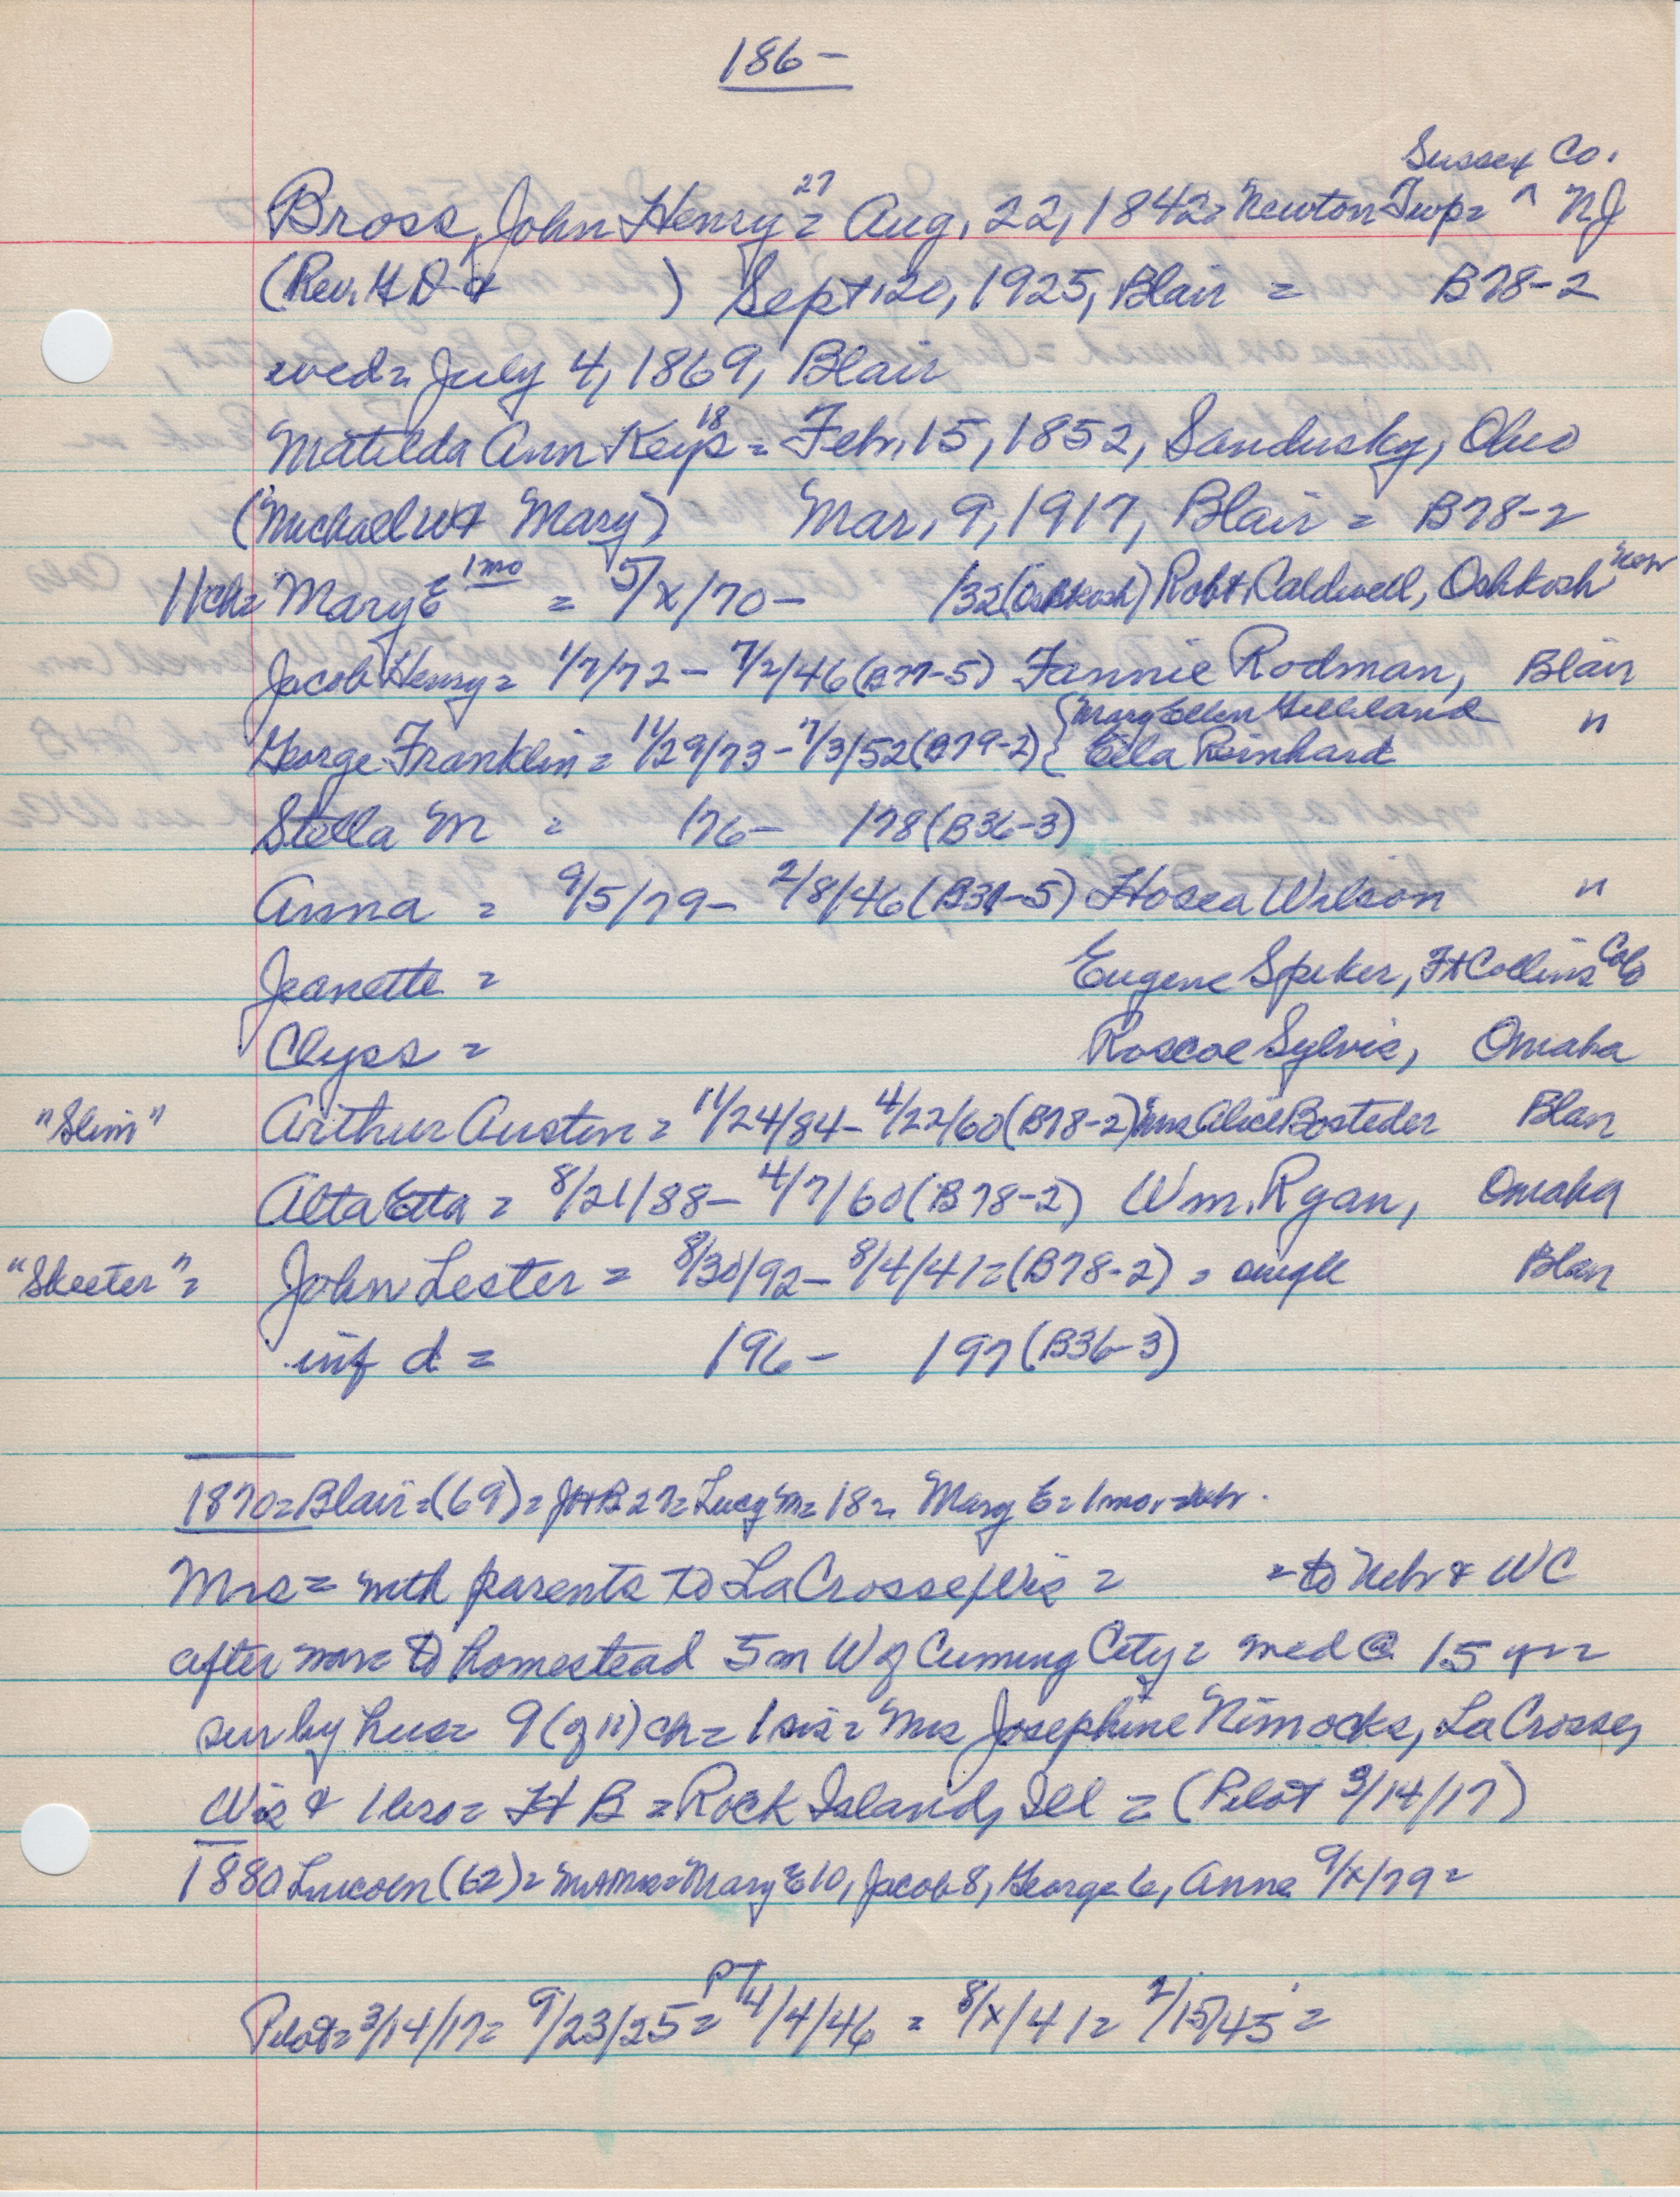 186-
Sussex Co.
Bross, John Henry 27 = Aug. 22, 1842 = Newton Twp = ^ NJ
(Rev. H D & ) Sept 20, 1925, Blair = B78-2
wed = July 4, 1869, Blair
Matilda Ann Keys 18 = Feb. 15, 1852, Sandusky, Ohio
(Michael W & Mary) Mar. 9, 1917, Blair = B78-2
11ch = Mary E 1mo = 5/x/70 - /32 (Oshkosh) Robt Caldwell, Oshkosh Nebr
Jacob Henry = 1/7/72 - 7/2/46 (B77-5) Fannie Rodman, Blair
George Franklin = 11/29/73 - 7/3/52 (B79-2) { Mary Ellen Gilliland "
{ Ella Reinhard
Stella M = /76 - /78 (B36-3)
Anna = 9/5/79 - 2/8/46 (B31-5) Hosea Wilson "
Jeanette = Eugene Spiker, Ft Collins Colo
Clyss = Roscoe Sylvis, Omaha
"Slim" Arthur Austin = 11/24/84 - 4/22/60 (B78-2) Alice Bosteder Blair
Alta Etta = 8/21/88 - 4/7/60 (B78-2) Wm. Ryan, Omaha
"Skeeter" = John Lester = 8/30/92 - 8/4/41 = (B78-2) = single Blair
inf d = /96 - /97 (B36-3)
1870 = Blair = (69) = JHB 27 = Lucy M = 18 = Mary E = 1 mo = Nebr.
Mrs = with parents to LaCrosse, Wis = = to Nebr & WC
after mar = to homestead 5 m W of Cuming City = med @ 15 yr =
sur by hus = 9 (of 11) ch = 1 sis = Mrs Josephine Nimocks, LaCrosse,
Wis & 1 bro = H B = Rock Island, Ill = (Pilot 3/14/17)
1880 Lincoln (62) = Mr & Mrs = Mary E 10, Jacob 8, George 6, Anna 9/x/79 =
Pilot = 3/14/17 = 9/23/25 = PT 4/4/46 = 8/x/41 = 2/15/45 =